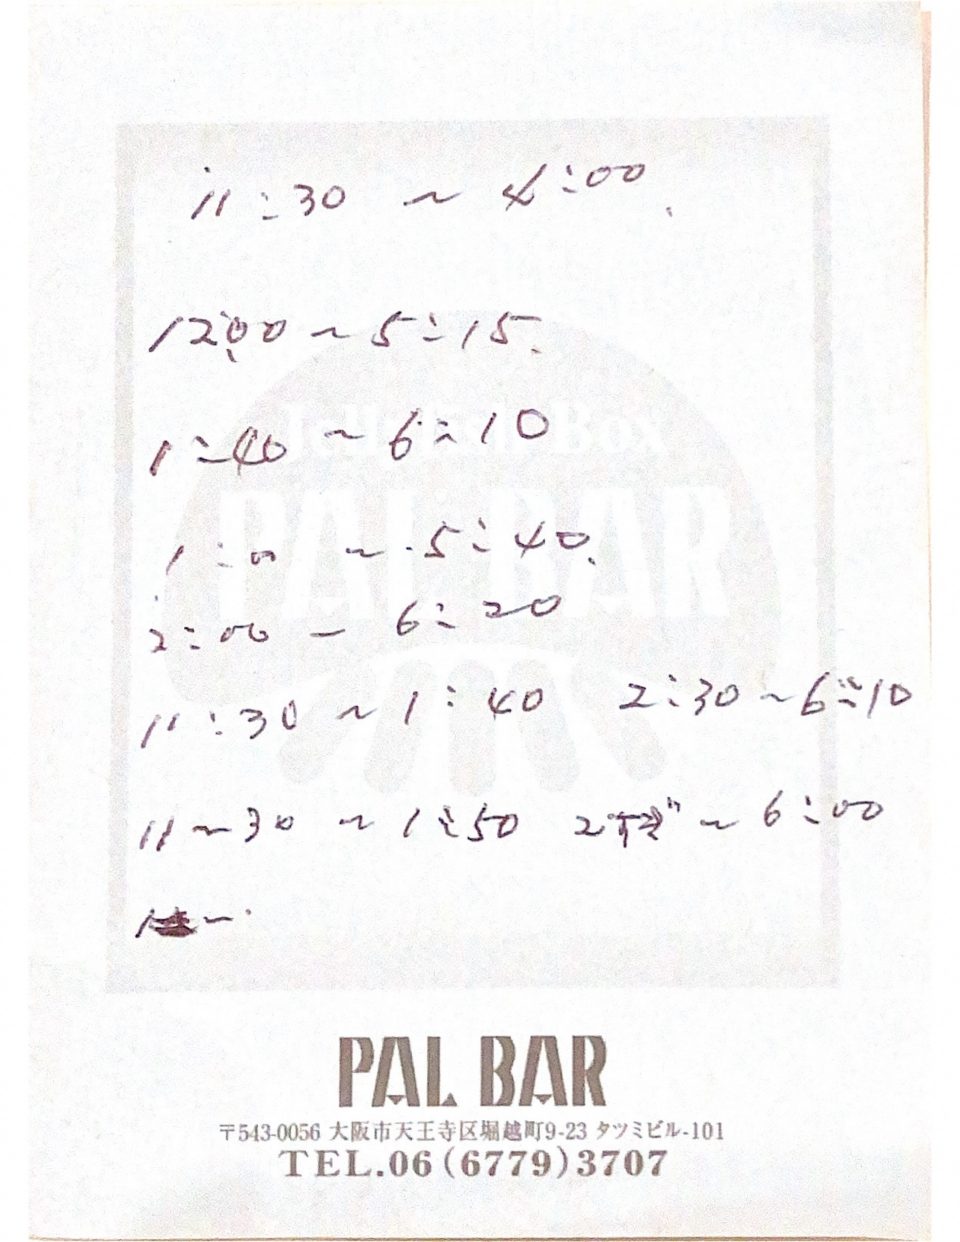 11:30 ~ 4:00
12:00 ~ 5:15
1:40 ~ 6:10
1:00 ~ 5:40
2:00 - 6:20
11:30 ~ 1:40 2:30 ~ 6:10
11~30 ~ 1:50 2 ~ 6:00
PAL BAR
PAL BAR
〒543-0056 大阪市天王寺区堀越町9-23 タツミビル-101
TEL.06(6779)3707